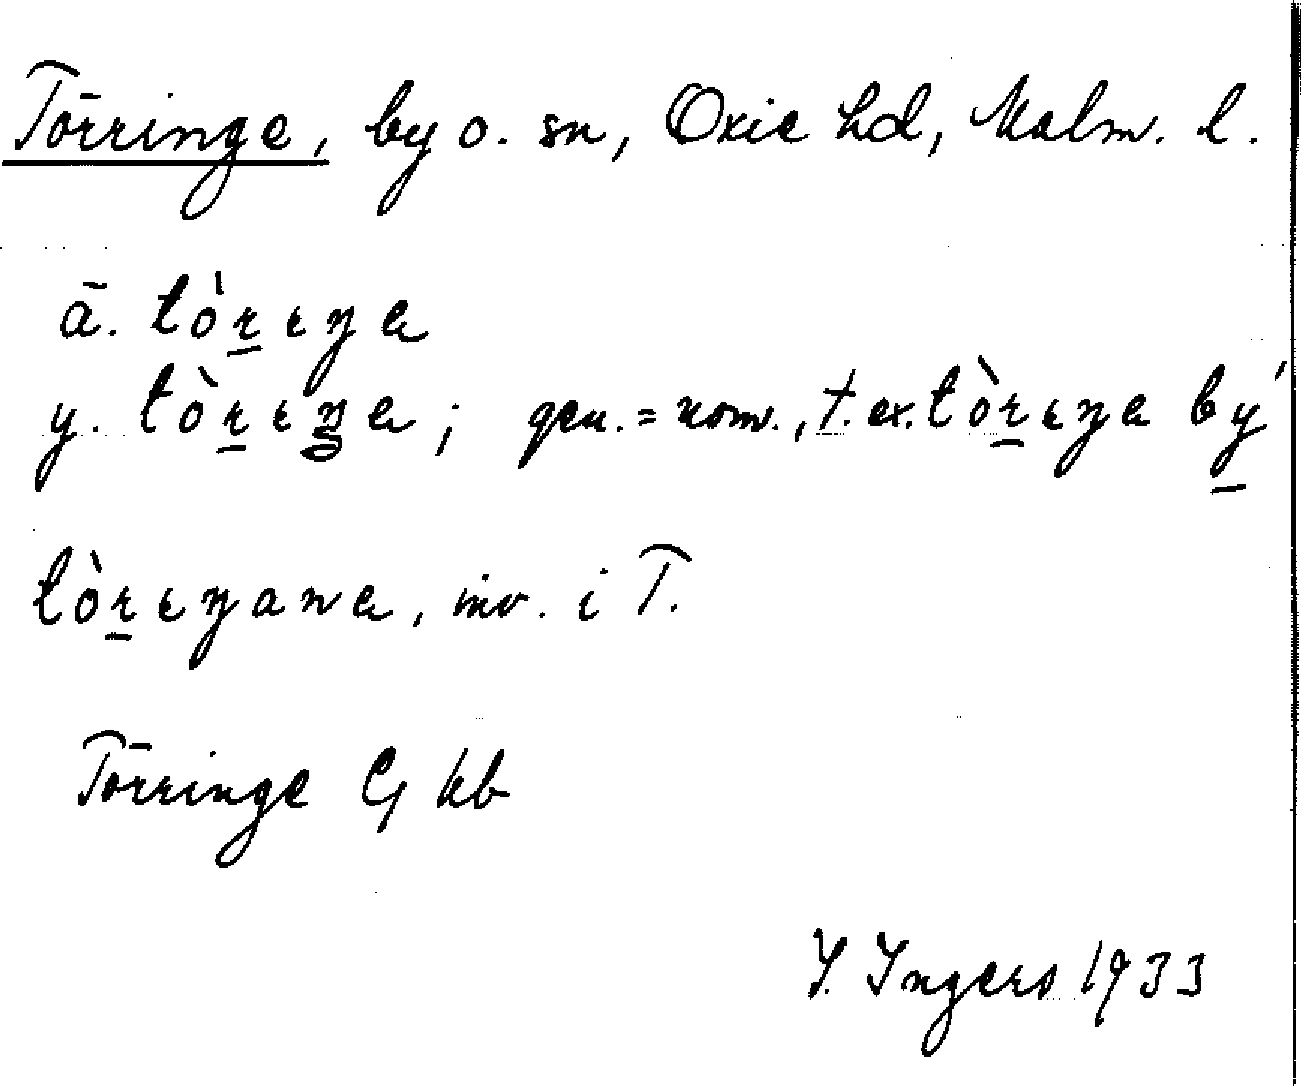 Törringe, by o. sn, Oxie hd, Malm. l.
ä. tòr̲ɩŋa
y. tòr̲ɩŋa; gen. = nom., t. ex. tòr̲ɩŋa bý̲
tòr̲ɩŋana, inv. i T.
Törringe GJ kb
I. Ingers 1933